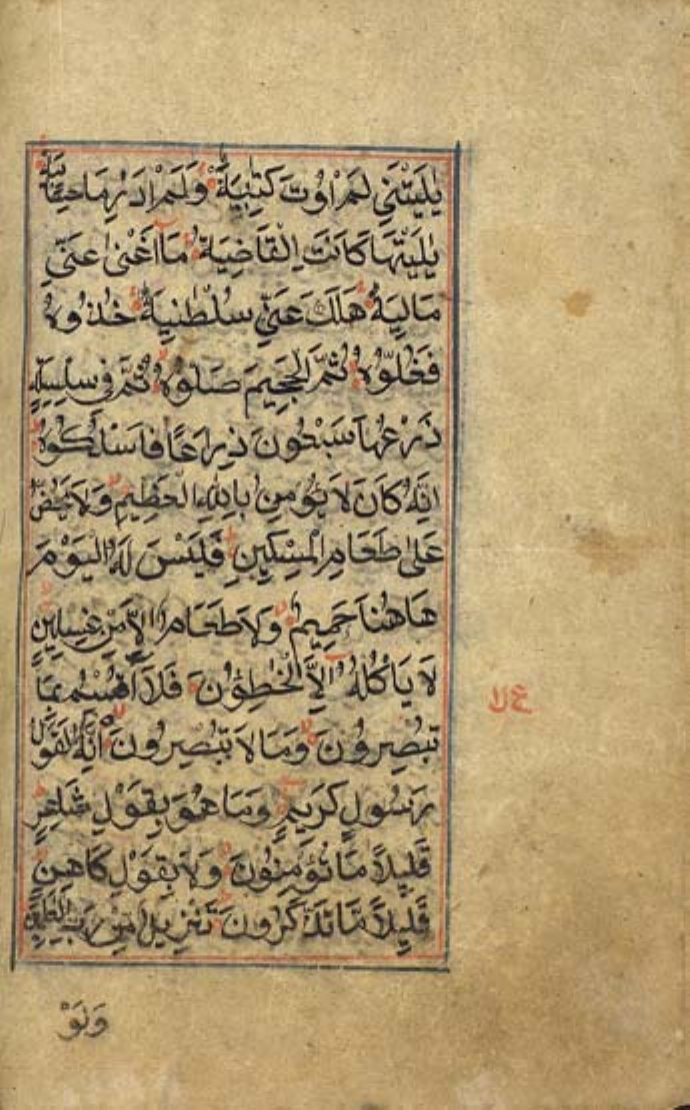 يٰلَيْتَنِي لَمْ اُوْتَ كِتٰبِيَهْ وَلَمْ اَدْرِ مَا حِسَابِيَهْ
يٰلَيْتَهَا كَانَتِ الْقَاضِيَةَ مَا اَغْنٰى عَنِّي
مَالِيَهْ هَلَكَ عَنِّي سُلْطٰنِيَهْ خُذُوهُ
فَغُلُّوْهُ ثُمَّ الْجَحِيمَ صَلُّوهُ ثُمَّ فِي سِلْسِلَةٍ
ذَرْعُهَا سَبْعُونَ ذِرَاعًا فَاسْلُكُوهُ
اِنَّهُ كَانَ لَا يُؤْمِنُ بِاللّٰهِ الْعَظِيمِ وَلَا يَحُضُّ
عَلٰى طَعَامِ الْمِسْكِينِ فَلَيْسَ لَهُ الْيَوْمَ
هَاهُنَا حَمِيمٌ وَلَا طَعَامٌ اِلَّا مِنْ غِسْلِينٍ
لَا يَأْكُلُهُ اِلَّا الْخَاطِؤُنَ فَلَا اُقْسِمُ بِمَا
تُبْصِرُونَ وَمَا لَا تُبْصِرُونَ اِنَّهُ لَقَوْلُ
رَسُولٍ كَرِيمٍ وَمَا هُوَ بِقَوْلِ شَاعِرٍ
قَلِيلًا مَّا تُؤْمِنُونَ وَلَا بِقَوْلِ كَاهِنٍ
قَلِيلًا مَّا تَذَكَّرُونَ تَنْزِيلٌ مِّنْ رَّبِّ الْعٰلَمِينَ
وَلَوْ